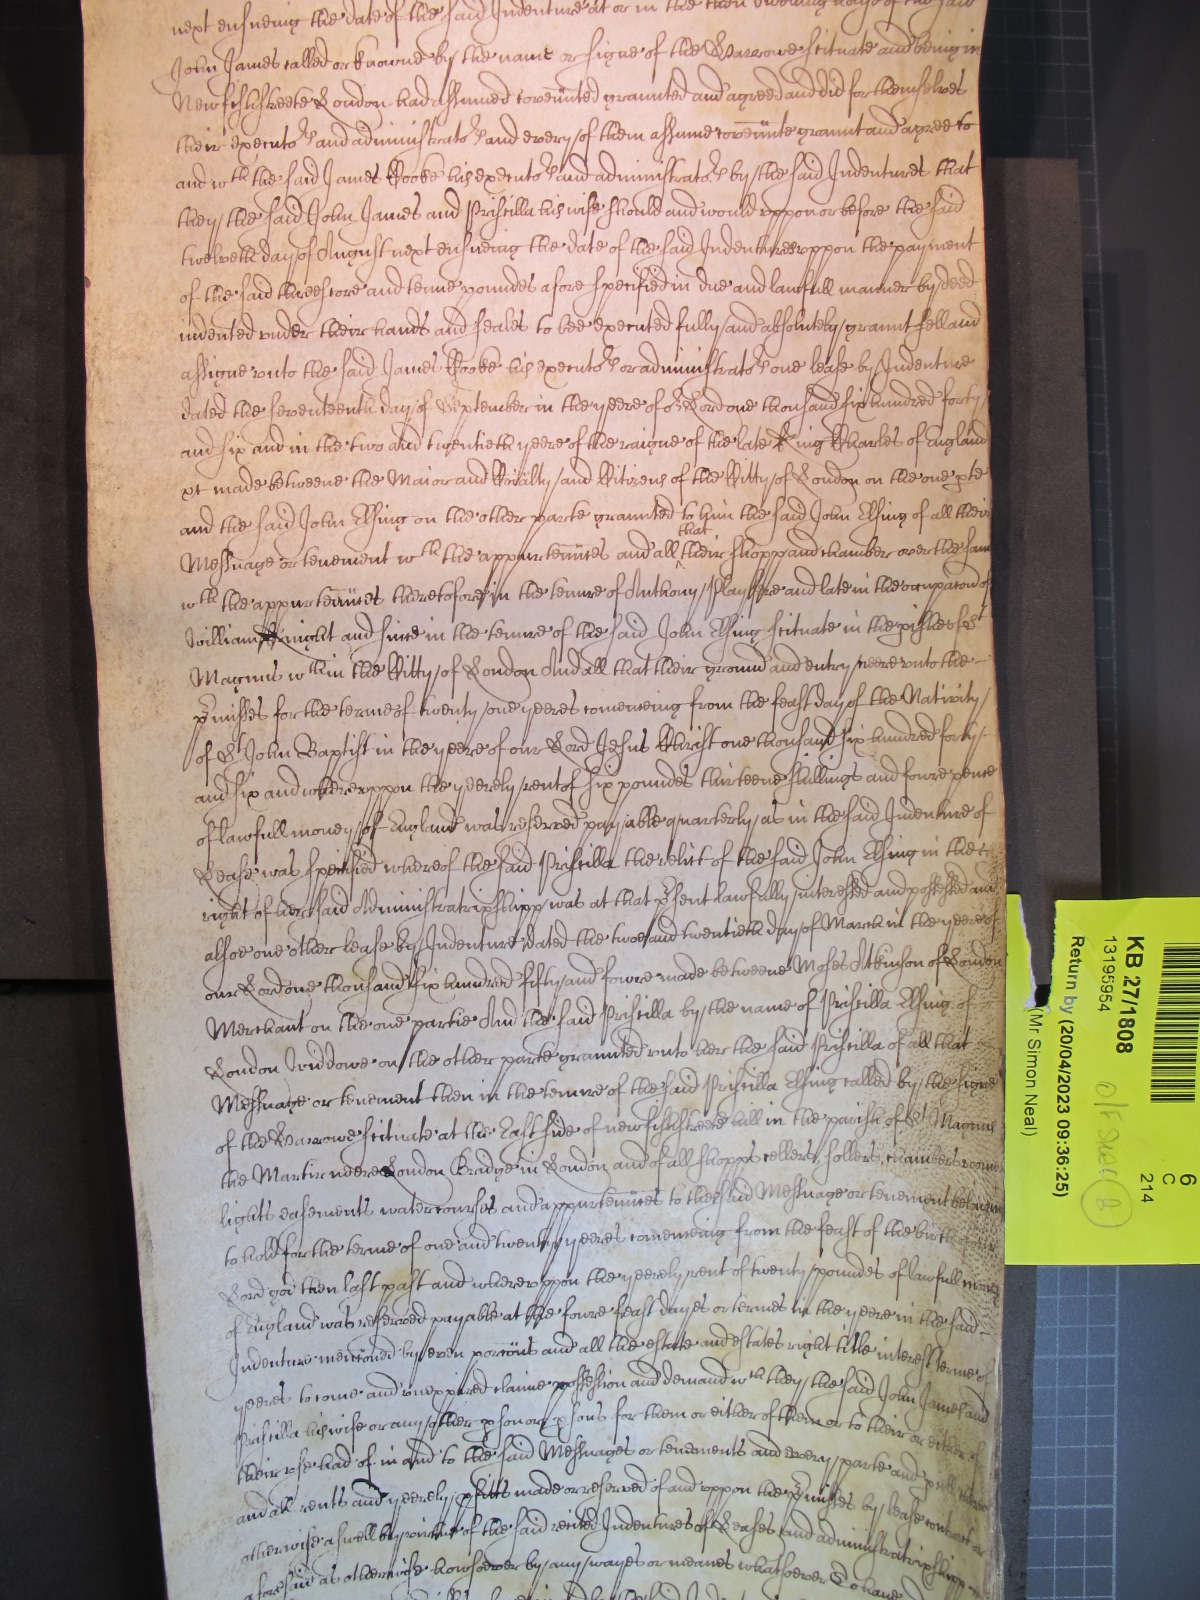 next ensueing the date of the said Indenture at or in the then dwelling house of the said
John James called or knowne by the name or signe of the Harrowe scituate and being in
Newfishstreete London had assumed coveñnted graunted and agreed and did for themselves
their executors and administrators and every of them assume coveñnte graunt and agree to
and wth the said James Cooke his executors and administrators by the said Indentures that
they the said John James and Priscilla his wife should and would uppon or before the said
twelveth day of August next ensueing the date of the said Indentures uppon the payment
of the said threescore and tenne poundes afore specified in due and lawfull manner by deed
indented under their hands and seales to bee executed fully and absolutely graunt sell and
assigne unto the said James Cooke his executors or administrators one lease by Indenture
dated the seventeenth day of September in the yeere of or Lord one thousand six hundred forty
and six and in the two and twentieth yeere of the raigne of the late King Charles of England
xt made betweene the Maior and Coĩalty and Citizens of the Citty of London on the one pte
and the said John Elsing on the other parte graunted to him the said John Elsing of all their
Messuage or tenement wth the appurteñnces and all that their shopp and chamber over the same
wth the appurteñnces theretofore in the tenure of Anthony Playfere and late in the occupacon of
William Knight and since in the tenure of the said John Elsing scituate in the pishe of St
Magnus wthin the Citty of London And all that their ground and entry neere unto the
pmisses for the terme of twenty one yeeres comenceing from the feast day of the Nativity
of St John Baptist in the yeere of our Lord Jesus Christ one thousand six hundred forty
and six and whereuppon the yeerely rent of six poundes thirteene shillings and foure pence
of lawfull money of England was reserved payable quarterly as in the said Indenture of
Lease was specified whereof the said Priscilla the relict of the said John Elsing in the
right of her said Administratripshipp was at that psent lawfully interessed and possessed and
alsoe one other lease by Indenture dated the two and twentieth day of March in the yeere of
our Lord one thousand six hundred fifty and foure made betweene Moses Atkinson of London
Merchant on the one partie And the said Priscilla by the name of Priscilla Elsing of
London Widdowe on the other parte graunted unto her the said Priscilla of all that
Messuage or tenement then in the tenure of the said Priscilla Elsing called by the signe
of the Harrowe scituate at the East side of newfishstreete hill in the parish of St Magnus
the Martir neere London Bridge in London and of all shopps cellers, sollers, chambers roomes
lights easements watercourses and appurteñnces to the said Messuage or tenement belonging
to hold for the terme of one and twenty yeeres comenceing from the feast of the birth of our
Lord god then last past and whereuppon the yeerely rent of twenty poundes of lawfull money
of England was reserved payable at the foure feast dayes or termes in the yeere in the said
Indenture mencõned by even porcõns and all the estate and estates right title interest terme of
yeeres to come and unexpired claime possession and demand wch they the said John James and
Priscilla his wife or any other pson or psons for them or either of them or to their or either of
their use had of in and to the said Messuages or tenements and every parte and pcell thereof
and all rents and yeerely pfitts made or reserved of and uppon the pmisses by lease contract or
otherwise aswell by virtue of the said recited Indentures of Leases and administratripshipp
aforesaid as otherwise howsoever by any wayes or meanes whatsoever To have
KB 27/1808
13195954
Return by (20/04/2023 09:36:25)
(Mr Simon Neal)
6
C
214